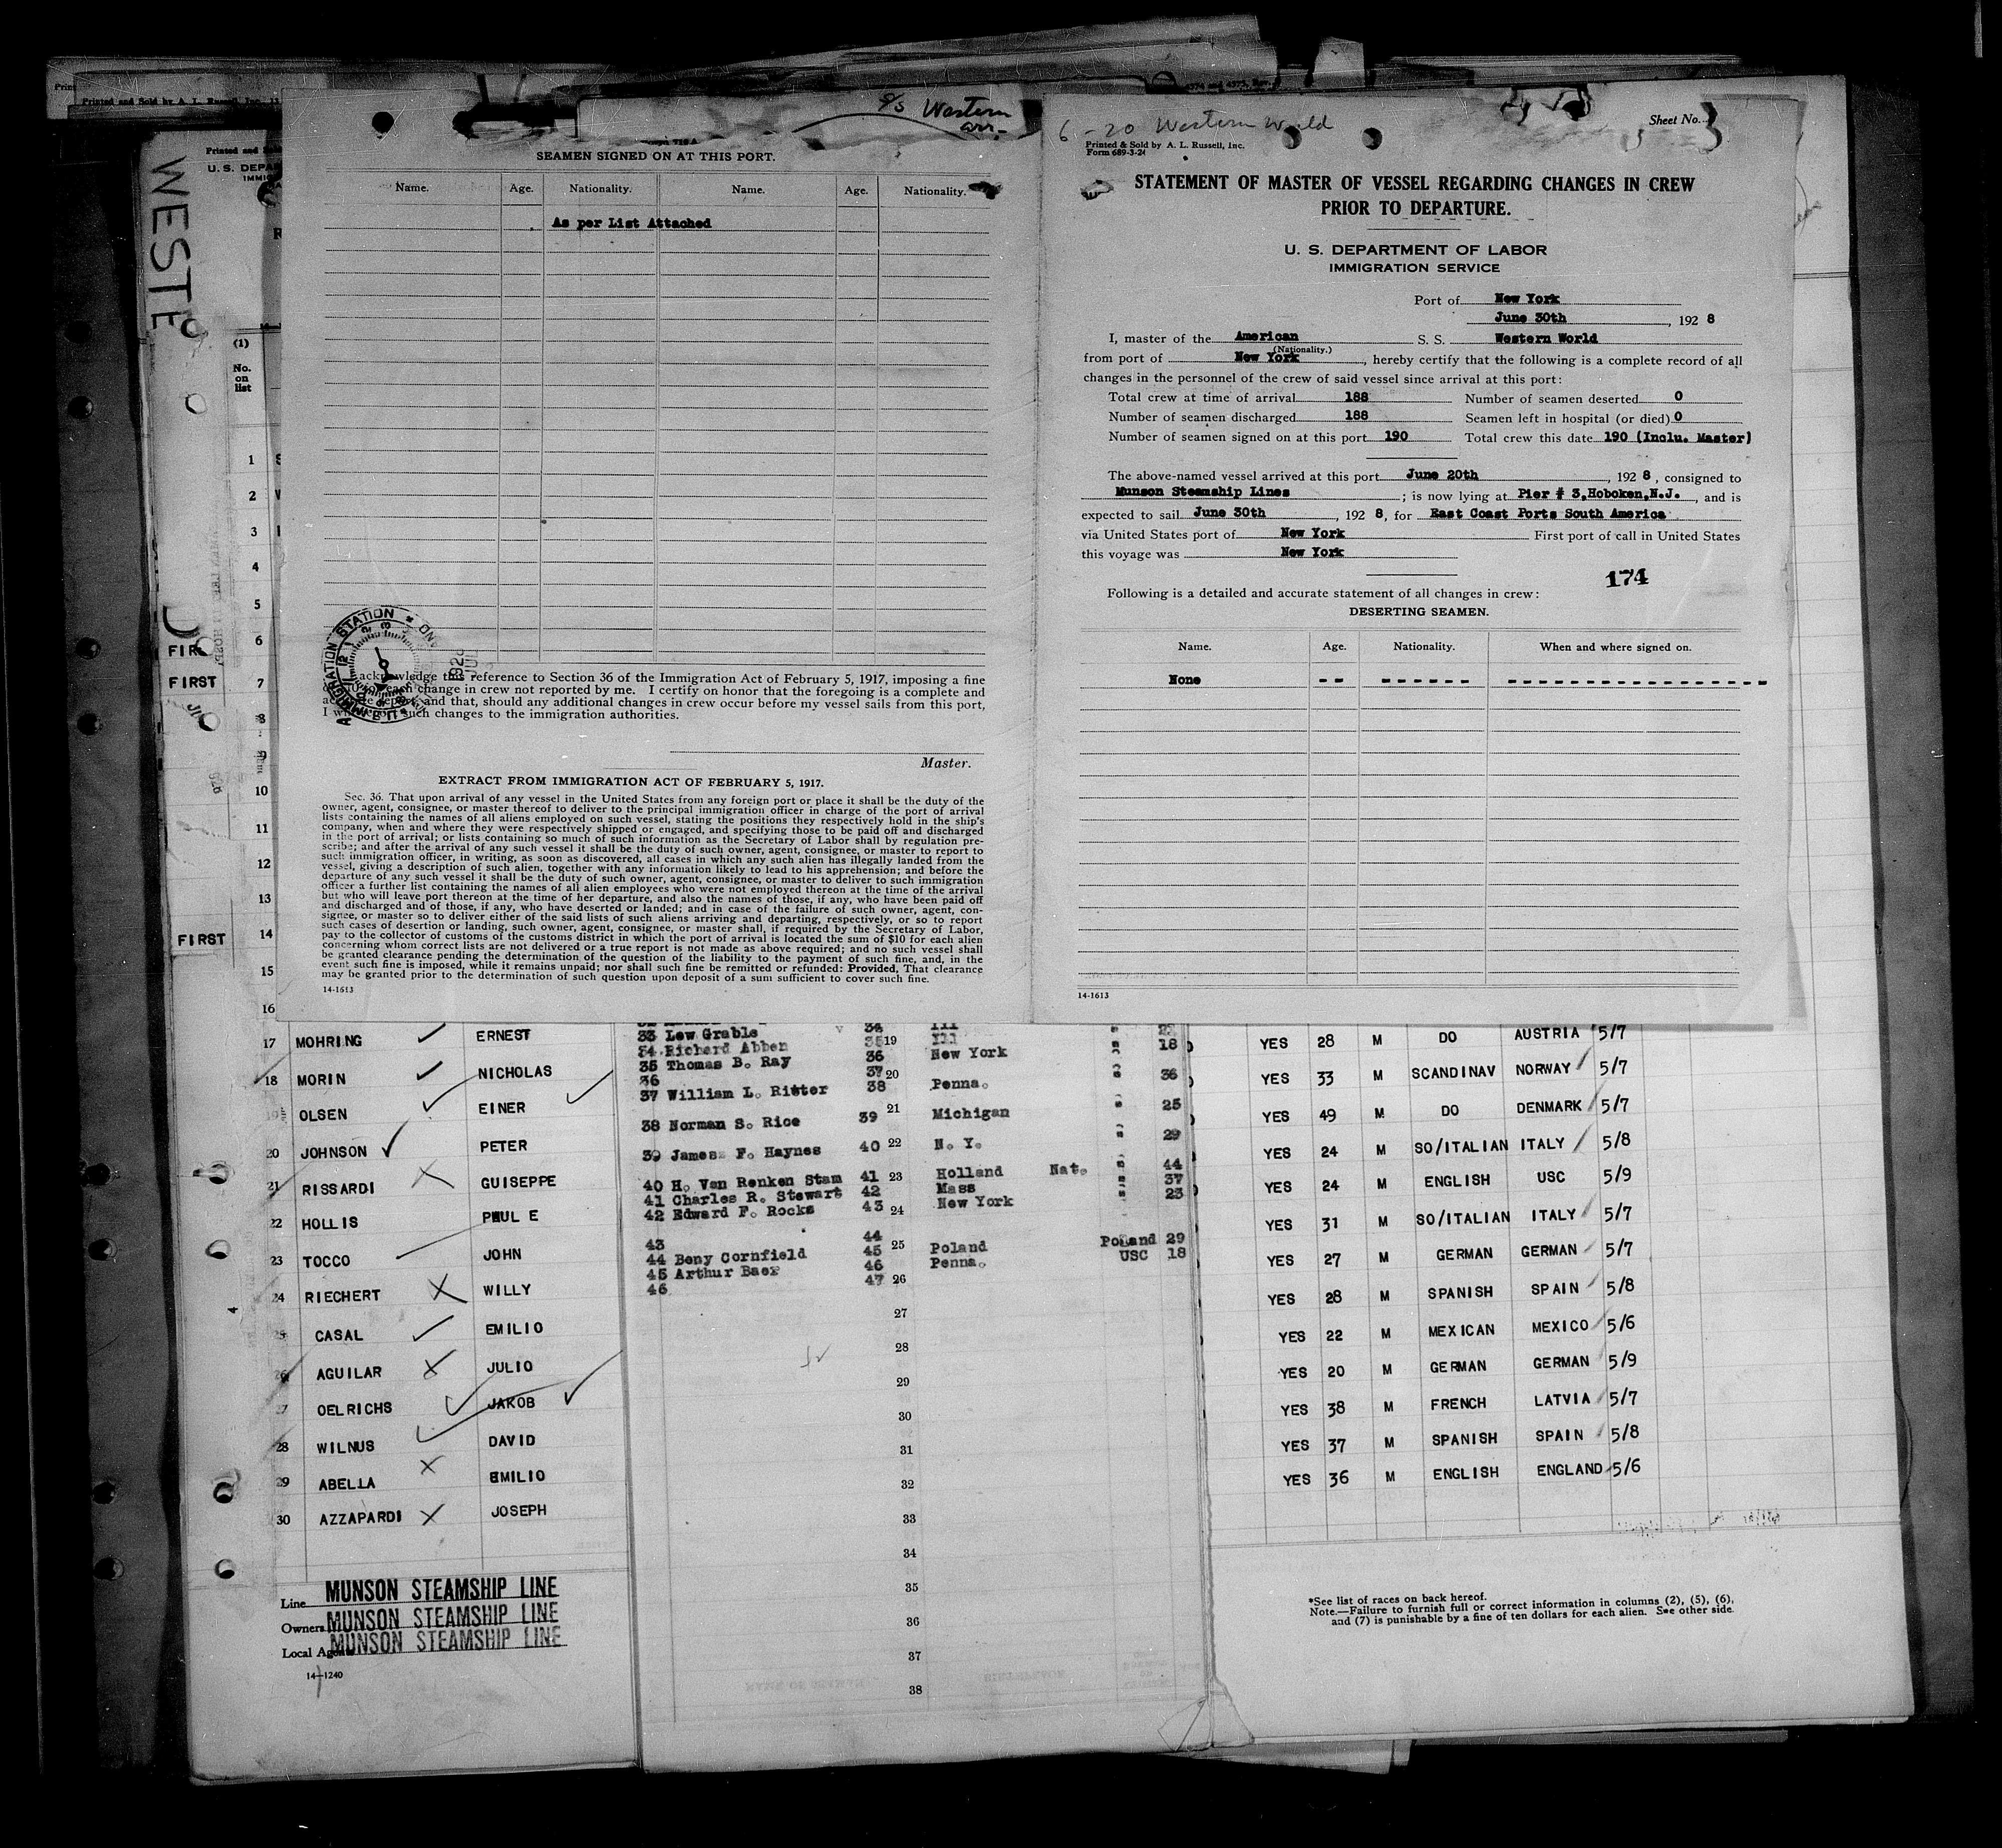 S/S Western
arr.
SEAMEN SIGNED ON AT THIS PORT.
Name. Age. Nationality. Name. Age. Nationality.
As per List Attached
acknowledge this reference to Section 36 of the Immigration Act of February 5, 1917, imposing a fine
each change in crew not reported by me. I certify on honor that the foregoing is a complete and
and that, should any additional changes in crew occur before my vessel sails from this port,
I such changes to the immigration authorities.
Master.
EXTRACT FROM IMMIGRATION ACT OF FEBRUARY 5, 1917.
Sec. 36. That upon arrival of any vessel in the United States from any foreign port or place it shall be the duty of the
owner, agent, consignee, or master thereof to deliver to the principal immigration officer in charge of the port of arrival
lists containing the names of all aliens employed on such vessel, stating the positions they respectively hold in the ship's
company, when and where they were respectively shipped or engaged, and specifying those to be paid off and discharged
in the port of arrival; or lists containing so much of such information as the Secretary of Labor shall by regulation pre-
scribe; and after the arrival of any such vessel it shall be the duty of such owner, agent, consignee, or master to report to
such immigration officer, in writing, as soon as discovered, all cases in which any such alien has illegally landed from the
vessel, giving a description of such alien, together with any information likely to lead to his apprehension; and before the
departure of any such vessel it shall be the duty of such owner, agent, consignee, or master to deliver to such immigration
officer a further list containing the names of all alien employees who were not employed thereon at the time of the arrival
but who will leave port thereon at the time of her departure, and also the names of those, if any, who have been paid off
and discharged and of those, if any, who have deserted or landed; and in case of the failure of such owner, agent, con-
signee, or master so to deliver either of the said lists of such aliens arriving and departing, respectively, or so to report
such cases of desertion or landing, such owner, agent, consignee, or master shall, if required by the Secretary of Labor,
pay to the collector of customs of the customs district in which the port of arrival is located the sum of $10 for each alien
concerning whom correct lists are not delivered or a true report is not made as above required; and no such vessel shall
be granted clearance pending the determination of the question of the liability to the payment of such fine, and, in the
event such fine is imposed, while it remains unpaid; nor shall such fine be remitted or refunded: Provided, That clearance
may be granted prior to the determination of such question upon deposit of a sum sufficient to cover such fine.
14-1613
6-20 Western World
Sheet No. 3
Printed & Sold by A. L. Russell, Inc.
Form 689-3-24
STATEMENT OF MASTER OF VESSEL REGARDING CHANGES IN CREW
PRIOR TO DEPARTURE.
U. S. DEPARTMENT OF LABOR
IMMIGRATION SERVICE
Port of New York
June 30th, 1928
I, master of the American S. S. Western World
(Nationality.)
from port of New York, hereby certify that the following is a complete record of all
changes in the personnel of the crew of said vessel since arrival at this port:
Total crew at time of arrival 188 Number of seamen deserted 0
Number of seamen discharged 188 Seamen left in hospital (or died) 0
Number of seamen signed on at this port 190 Total crew this date 190 (Inclu. Master)
The above-named vessel arrived at this port June 20th, 1928, consigned to
Munson Steamship Lines; is now lying at Pier # 3,Hoboken,N.J., and is
expected to sail June 30th, 1928, for East Coast Ports South America
via United States port of New York First port of call in United States
this voyage was New York
174
Following is a detailed and accurate statement of all changes in crew:
DESERTING SEAMEN.
Name. Age. Nationality. When and where signed on.
None -- ------ -----------------
14-1613
WESTE
(1)
No.
on
list
1
2
3
4
5
6
FIRST 7
8
9
10
11
12
13
FIRST 14
15
16
17 MOHRING ERNEST
18 MORIN NICHOLAS
OLSEN EINER
20 JOHNSON PETER
21 RISSARDI GUISEPPE
22 HOLLIS PAUL E
23 TOCCO JOHN
24 RIECHERT WILLY
25 CASAL EMILIO
26 AGUILAR JULIO
27 OELRICHS JAKOB
28 WILNUS DAVID
29 ABELLA EMILIO
30 AZZAPARDI JOSEPH
Line MUNSON STEAMSHIP LINE
Owners MUNSON STEAMSHIP LINE
Local Agents MUNSON STEAMSHIP LINE
14-1240
33 Lew Grable 34 Ill
34 Richard Abben 35 19 Ill 18
35 Thomas B. Ray 36 New York
36 37 20
37 William L. Ritter 38 Penna. 36
38 Norman S. Rice 39 21 Michigan 25
39 James F. Haynes 40 22 N. Y. 29
40 H. Van Renken Stam 41 23 Holland Nat. 44
41 Charles R. Stewart 42 Mass 37
42 Edward F. Rocks 43 24 New York 23
43 44
44 Beny Cornfield 45 25 Poland Poland 29
45 Arthur Baer 46 Penna. USC 18
46 47 26
27
28
29
30
31
32
33
34
35
36
37
38
YES 28 M DO AUSTRIA 5/7
YES 33 M SCANDINAV NORWAY 5/7
YES 49 M DO DENMARK 5/7
YES 24 M SO/ITALIAN ITALY 5/8
YES 24 M ENGLISH USC 5/9
YES 31 M SO/ITALIAN ITALY 5/7
YES 27 M GERMAN GERMAN 5/7
YES 28 M SPANISH SPAIN 5/8
YES 22 M MEXICAN MEXICO 5/6
YES 20 M GERMAN GERMAN 5/9
YES 38 M FRENCH LATVIA 5/7
YES 37 M SPANISH SPAIN 5/8
YES 36 M ENGLISH ENGLAND 5/6
*See list of races on back hereof.
Note.—Failure to furnish full or correct information in columns (2), (5), (6),
and (7) is punishable by a fine of ten dollars for each alien. See other side.